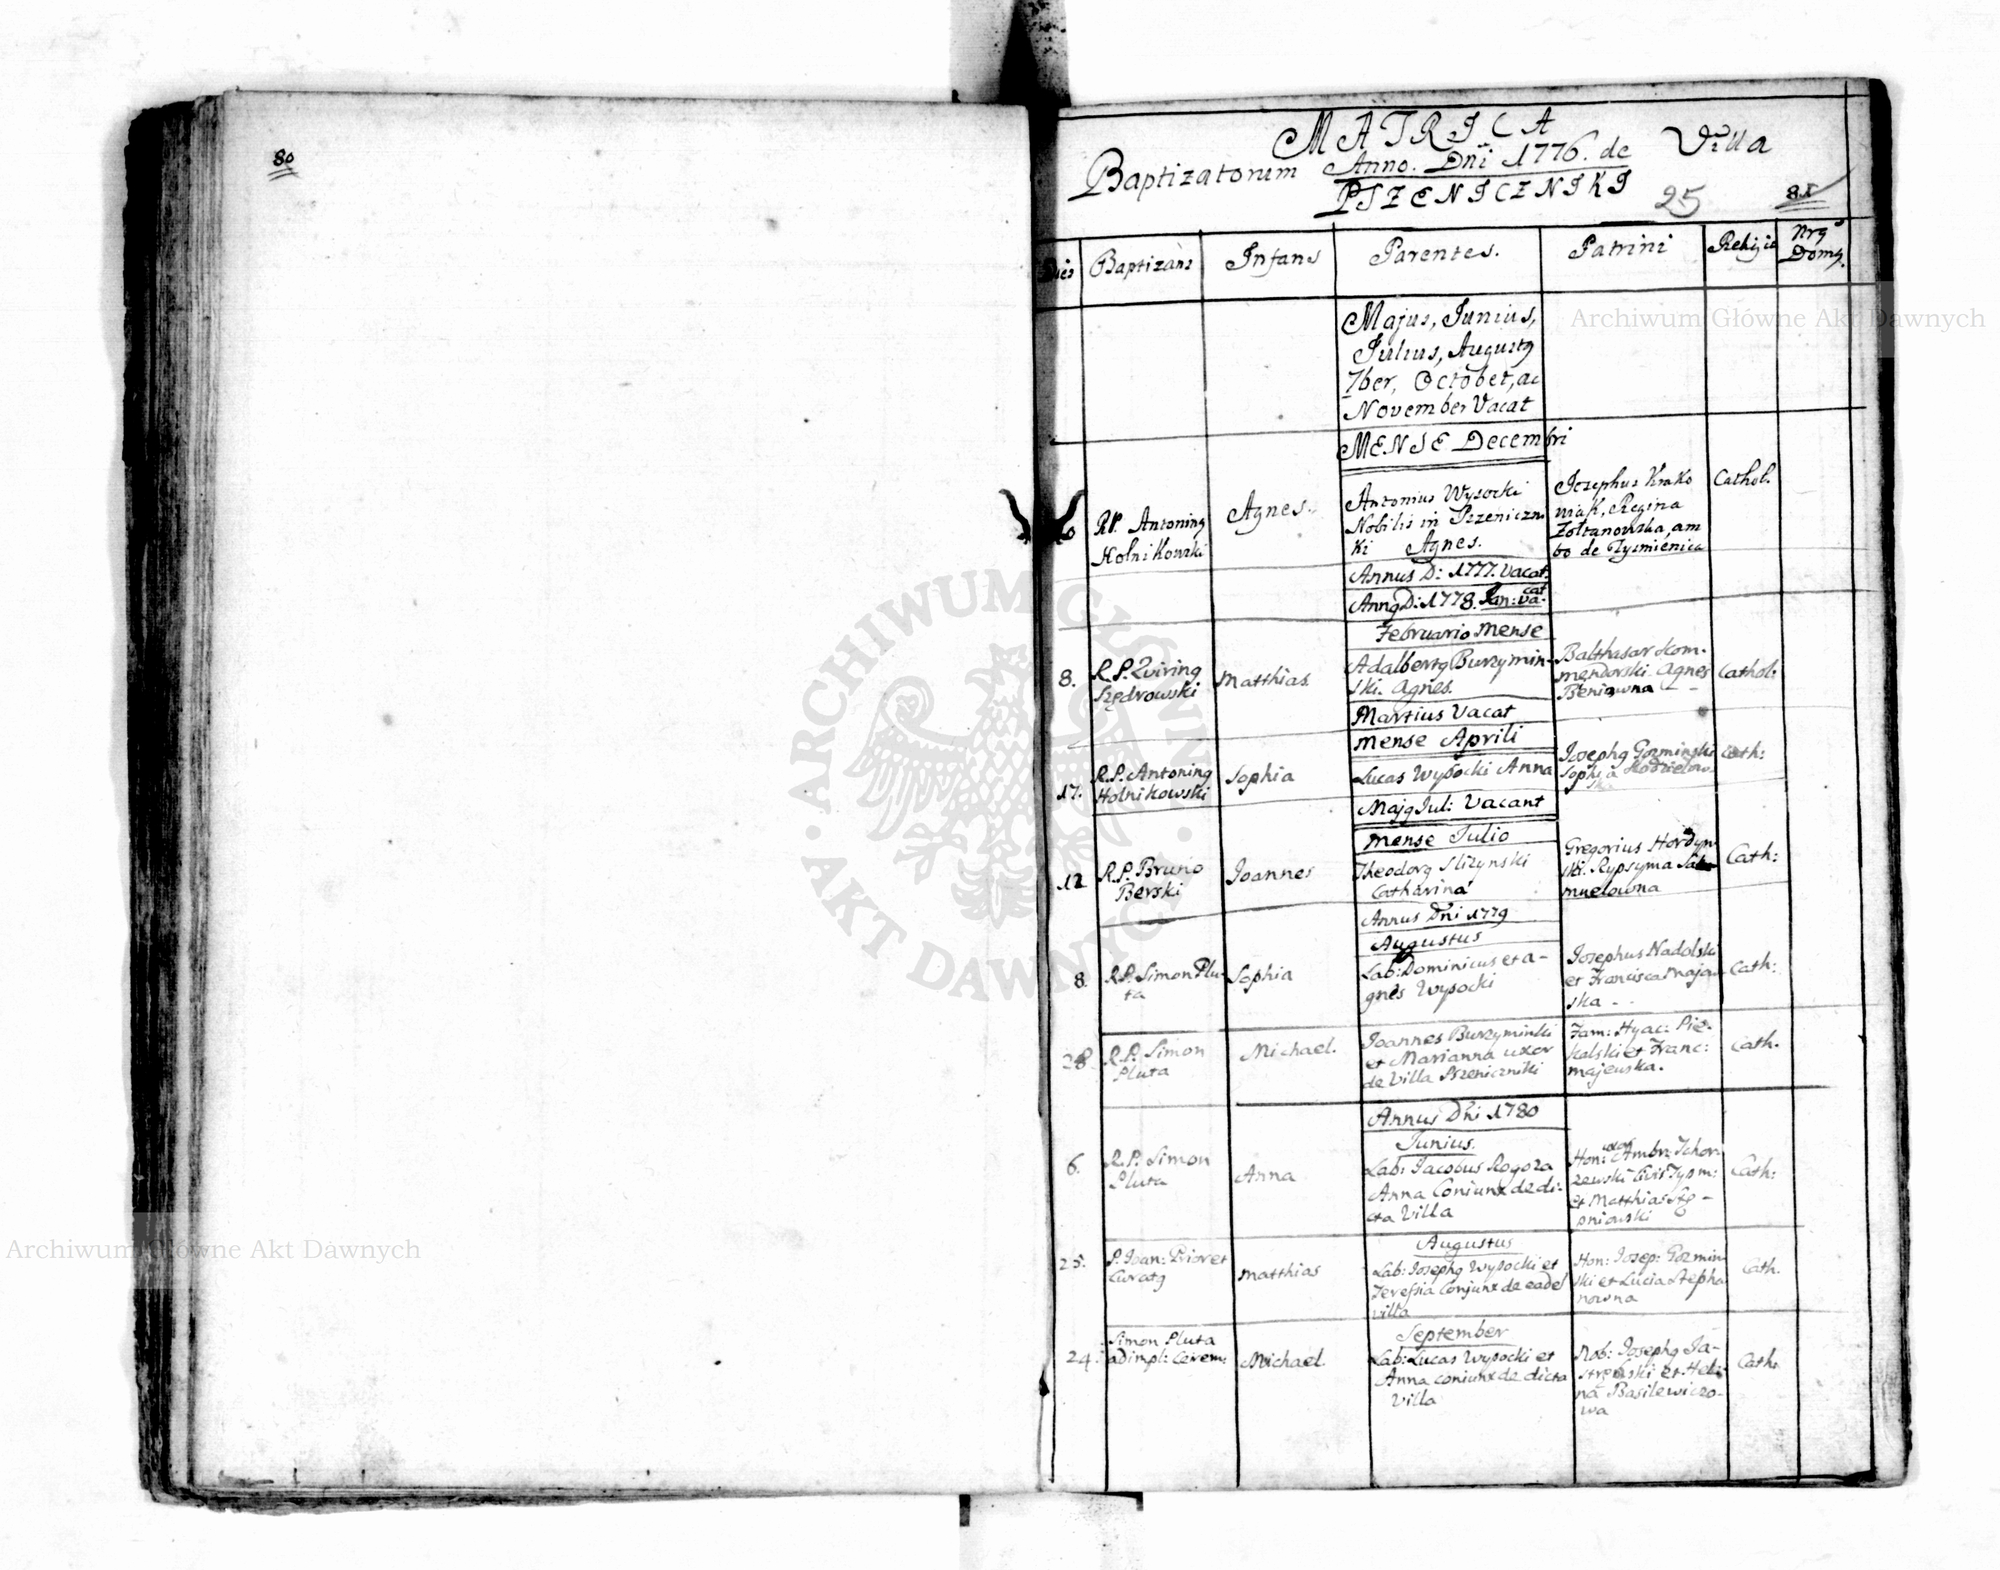 80
MATRICA
Baptizatorum Anno. Dni 1776. de Villa
PSZENICZNIKI
25
81
Dies
Baptizans
Infans
Parentes.
Patrini
Religio
Nrg
Domg.
Majus, Junius,
Julius, Augustg
7ber, October, ac
November Vacat
MENSE Decembri
RP. Antoning
Holnikowski
Agnes.
Antonius Wysocki
Nobilis in Pszeniczni
ki Agnes.
Josephus Krako
wiak, Regina
Zołtanowska, am
bo de Tysmienica
Cathol.
Annus D: 1777. vacat.
Anng D: 1778. Jan: vacat.
Februario Mense
8.
R.P. Quiring
Szędrowski
Matthias.
Adalbertg Burzymin-
ski. Agnes.
Balthasar Kom-
mendorski Agnes
Beniowna
Cathol:
Martius Vacat
Mense Aprili
17.
R.P. Antoning
Holnikowski
Sophia
Lucas Wysocki Anna
Josephg Gozminski
Sophia
Cath:
Majg Jul: Vacant
Mense Julio
12
R.P. Bruno
Berski
Joannes
Theodorg Slizynski
Catharina
Gregorius Hordyn-
ski. Rypsyma
muelowna
Cath:
Annus Dni 1779
Augustus
8.
R.P. Simon Plu-
ta
Sophia
Lab: Dominicus et a-
gnes Wysocki
Josephus Nadolski
et Francisca Maja-
ska - -
Cath:
28
R.P. Simon
Pluta
Michael.
Joannes Burzyminski
et Marianna uxor
de Villa Pszeniczniki
Fam: Hyac: Pie-
kalski et Franc:
majewska.
Cath.
Annus Dni 1780
Junius.
6.
R.P. Simon
Pluta
Anna
Lab: Jacobus Rogoza
Anna Coniunx de di-
cta Villa
Hon: uxor Ambr: Tchor-
zewski Civis Tysm:
et Matthias Stę-
pniowski
Cath:
Augustus
25.
P. Joan: Prior et
Curatg
Matthias
Lab: Josephg Wysocki et
Teressia Conjunx de eadel
villa
Hon: Josep: Gozmin-
ski et Lucia Stepha
nowna
Cath.
September
24.
Simon Pluta
adimpl: Cerem:
Michael.
Lab: Lucas Wysocki et
Anna coniunx de dicta
Villa
Nob: Josephg Ja-
strębski et Hele-
na Basilewiczo-
wa
Cath.
Archiwum Główne Akt Dawnych
ARCHIWUM GŁÓWNE AKT DAWNYCH
Archiwum Główne Akt Dawnych